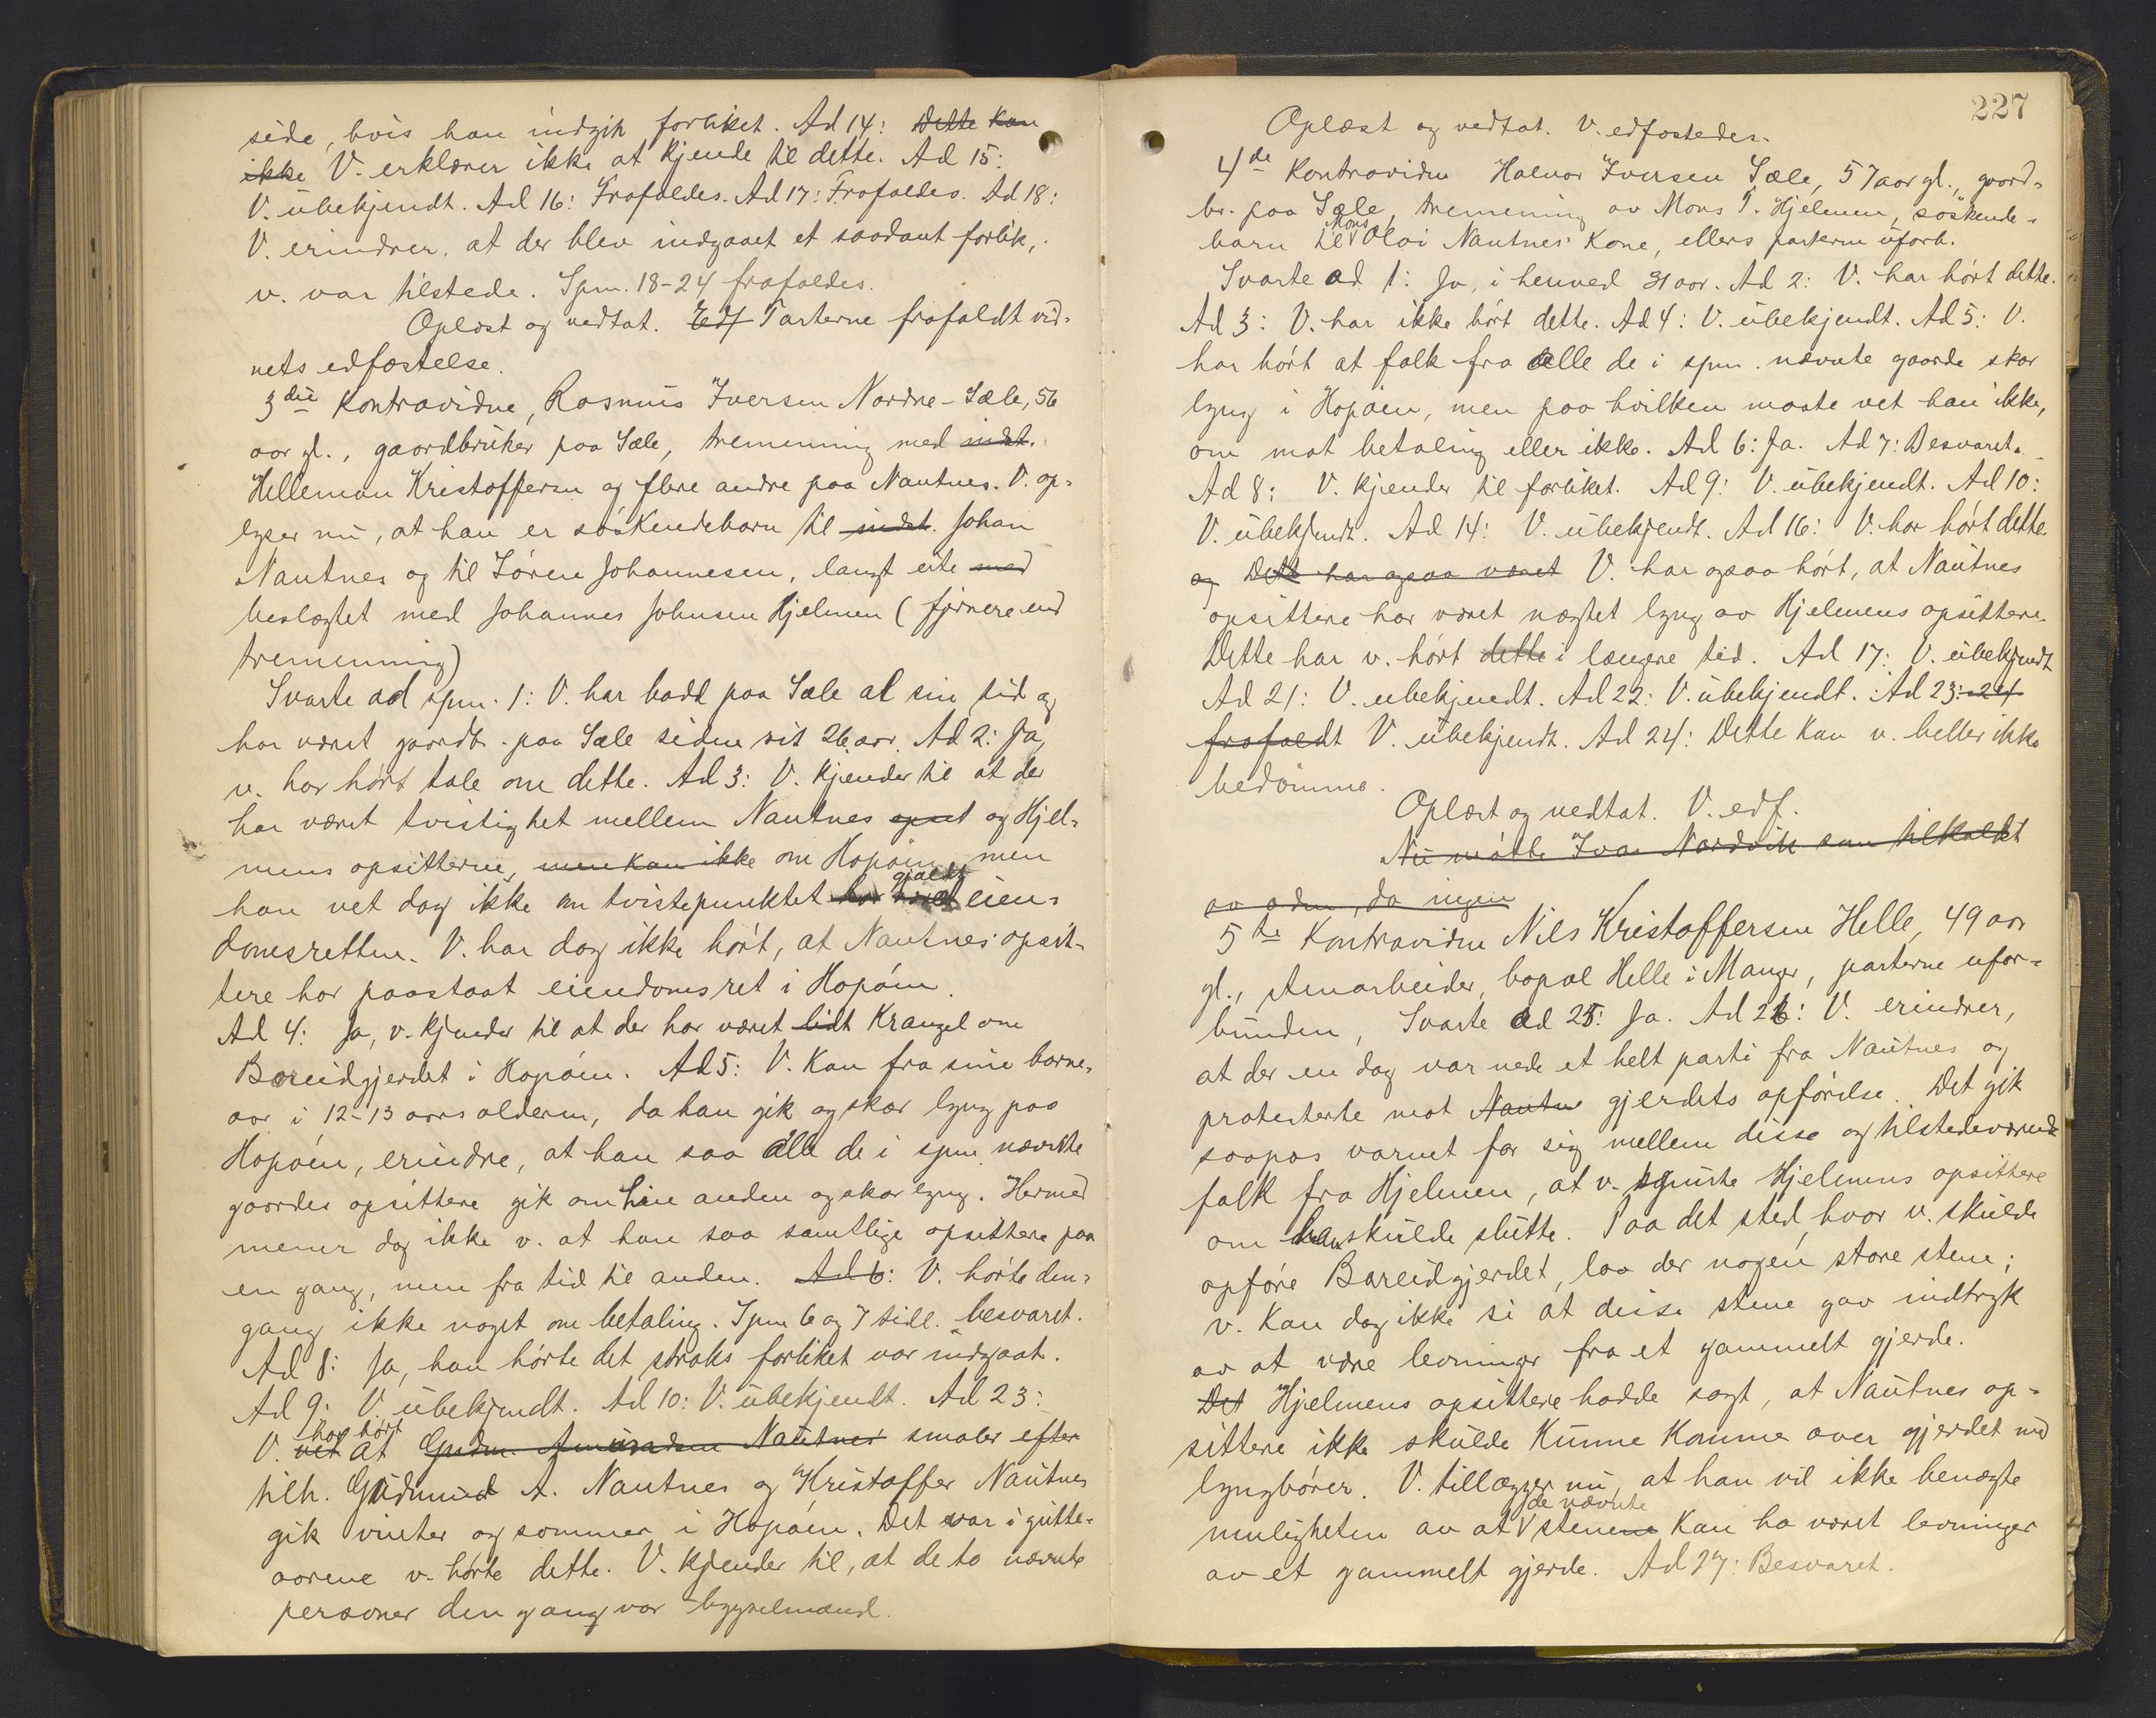 side, hvis han indgik forliket. Ad 14: Dette kan
ikke V. erklærer ikke at kjende til dette. Ad 15:
V. ubekjendt. Ad 16: Frafaldes. Ad 17: Frafaldes. Ad 18:
V. erindrer, at der blev indgaaet et saadant forlik,
v. var tilstede. Spm. 18-24 frafaldes.
Oplæst og vedtat. Edf Parterne frafaldt vid-
nets edfæstelse.
3die Kontravidne, Rasmus Iversen Nordre-Sæle, 56
aar gl., gaardbruker paa Sæle, tremenning med indst.
Helleman Kristoffersen og flere andre paa Nautnes. V. op-
lyser nu, at han er söskendebarn til indst. Johan
Nautnes og til Sören Johannesen, langt ute med
beslægtet med Johannes Johnsen Hjelmen (fjernere end
tremenning)
Svarte ad spm. 1: V. har bodd paa Sæle al sin tid og
har været gaardb. paa Sæle siden sit 26. aar. Ad 2: Ja,
v. har hört tale om dette. Ad 3: V. kjender til at der
har været tvistighet mellem Nautnes opsit og Hjel-
mens opsittere, men kan ikke om Hopöen, men
han vet dog ikke om tvistepunktet har været gjaldt eien-
domsretten. V. har dog ikke hört, at Nautnes opsit-
tere har paastaat eiendomsret i Hopöen.
Ad 4: Ja, v. kjender til at der har været lidt krangel om
Bareidgjerdet i Hopöen. Ad 5: V. kan fra sine barne-
aar i 12-13 aars alderen, da han gik og skar lyng paa
Hopöen, erindre, at han saa alle de i spm. nævnte
gaardes opsittere gik om hin anden og skar lyng. Hermed
mener dog ikke v. at han saa samtlige opsittere paa
en gang, men fra tid til anden. Ad 6: V. hörte den-
gang ikke noget om betaling. Spm 6 og 7 till. besvaret.
Ad 8: Ja, han hörte det straks forliket var indgaat.
Ad 9: V. ubekjendt. Ad 10: V. ubekjendt. Ad 23:
V. vet har hört at Gudm. Amundsen Nautnes smaler efter
tilh. Gudmund A. Nautnes og Kristoffer Nautnes
gik vinter og sommer i Hopöen. Det var i gutte-
aarene v. hörte dette. V. kjender til, at de to nævnte
personer den gang var bygselmænd.
227
Oplæst og vedtat. V. edfæstedes.
4de Kontravidne Halvor Iversen Sæle, 57 aar gl., gaard-
br. paa Sæle, tremening av Mons T. Hjelmen, söskende-
barn til Mons Oloi Nautnes' Kone, ellers parterne uforb.
Svarte ad 1: Ja, i henved 31 aar. Ad 2: V. har hört dette.
Ad 3: V. har ikke hört dette. Ad 4: V. ubekjendt. Ad 5: V.
har hört at folk fra alle de i spm. nævnte gaarde skar
lyng i Hopöen, men paa hvilken maate vet han ikke,
om mot betaling eller ikke. Ad 6: Ja. Ad 7: Besvaret.
Ad 8: V. kjender til forliket. Ad 9: V. ubekjendt. Ad 10:
V. ubekjendt. Ad 14: V. ubekjendt. Ad 16: V. har hört dette.
og Dette har ogsaa været V. har ogsaa hört, at Nautnes
opsittere har været nægtet lyng av Hjelmens opsittere.
Dette har v. hört dette i længere tid. Ad 17: V. ubekjendt
Ad 21: V. ubekjendt. Ad 22: V. ubekjendt. Ad 23: -24
frafaldt V. ubekjendt. Ad 24: Dette kan v. heller ikke
bedömme.
Oplæst og vedtat. V. edf.
Nu mötte Ivar Nordvik som tilkaldt
av adm, da ingen
5te Kontravidne Nils Kristoffersen Helle, 49 aar
gl., stenarbeider, bopæl Helle i Manger, parterne ufor-
bunden, Svarte ad 25: Ja. Ad 26: V. erindrer,
at der en dag var nede et helt parti fra Nautnes og
protesterte mot Nautne gjerdets opförelse. Det gik
saapas varmt for sig mellem disse og tilstedeværende
folk fra Hjelmen, at v. spurte Hjelmens opsittere
om han skulde slutte. Paa det sted, hvor v. skulde
opföre Bareidgjerdet, laa der nogen store stene;
v. kan dog ikke si at disse stene gav indtryk
av at være levninger fra et gammelt gjerde.
Det Hjelmens opsittere hadde sagt, at Nautnes op-
sittere ikke skulde kunne komme over gjerdet med
lyngbörer. V. tillægger nu, at han vil ikke benægte
muligheten av at de nævnte stenene kan ha været levninger
av et gammelt gjerde. Ad 27: Besvaret.